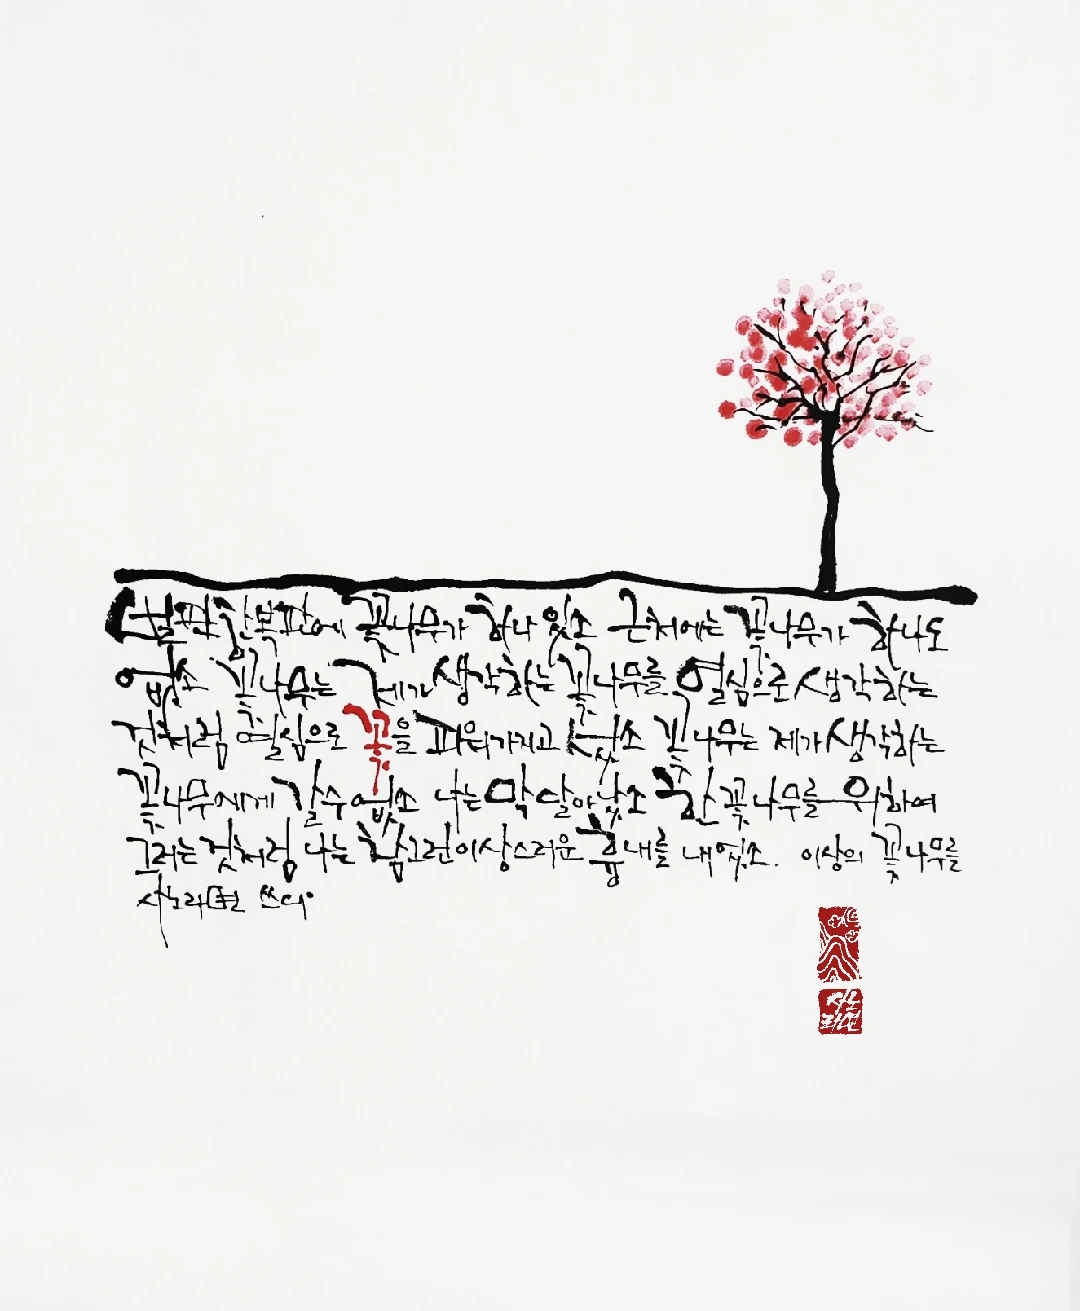 벌판한복판에 꽃나무가 하나 있소 근처에는 꽃나무가 하나도
없소 꽃나무는 제가 생각하는 꽃나무를 열심으로 생각하는
것처럼 열심으로 꽃을 피워가지고 섰소 꽃나무는 제가 생각하는
꽃나무에게 갈 수 없소 나는 막 달아났소 한 꽃나무를 위하여
그러는 것처럼 나는 참 그런 이상스러운 흉내를 내었소. 이상의 꽃나무를
사노라면 쓰다.
사노
라면